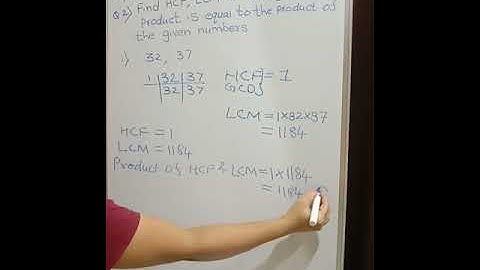 Q2) Find HCF, LCM
product is equal to the product of
the given numbers
i) 32, 37
1 | 32 | 37
32 | 37
HCF] = 1
GCD]
LCM = 1×32×37
= 1184
HCF = 1
LCM = 1184
Product of HCF & LCM = 1×1184
= 1184